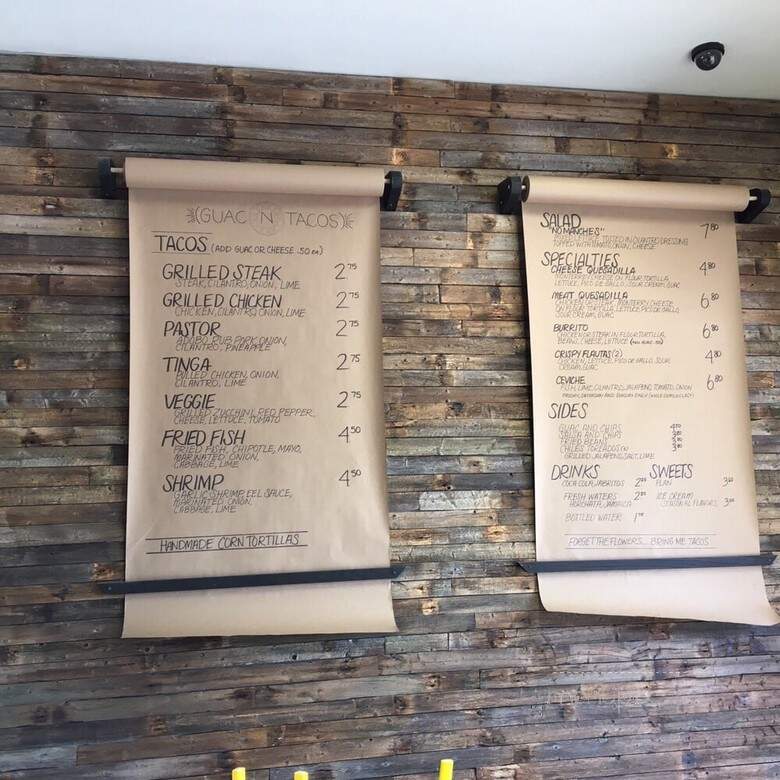 (GUAC N TACOS)
TACOS (ADD GUAC OR CHEESE .50 ea)
GRILLED STEAK 2.75
STEAK, CILANTRO, ONION, LIME
GRILLED CHICKEN 2.75
CHICKEN, CILANTRO, ONION, LIME
PASTOR 2.75
ADOBO RUB PORK, ONION,
CILANTRO, PINEAPPLE
TINGA 2.75
PULLED CHICKEN, ONION,
CILANTRO, LIME
VEGGIE 2.75
GRILLED ZUCCHINI, RED PEPPER,
CHEESE, LETTUCE, TOMATO
FRIED FISH 4.50
FRIED FISH, CHIPOTLE, MAYO,
MARINATED ONION,
CABBAGE, LIME
SHRIMP 4.50
GARLIC SHRIMP, EEL SAUCE,
MARINATED ONION,
CABBAGE, LIME
HANDMADE CORN TORTILLAS
SALAD
"NO MANCHES" 7.80
LETTUCE TOSSED IN CILANTRO DRESSING
TOPPED WITH TOMATO, ONION, CHEESE
SPECIALTIES
CHEESE QUESADILLA 4.80
MONTERREY CHEESE ON FLOUR TORTILLA,
LETTUCE, PICO DE GALLO, SOUR CREAM, GUAC
MEAT QUESADILLA 6.80
CHICKEN OR STEAK, MONTERREY CHEESE
ON FLOUR TORTILLA, LETTUCE, PICO DE GALLO,
SOUR CREAM, GUAC
BURRITO 6.80
CHICKEN OR STEAK IN FLOUR TORTILLA,
BEANS, CHEESE, LETTUCE
CRISPY FLAUTAS (2) 4.80
CHICKEN, LETTUCE, PICO DE GALLO, SOUR
CREAM, GUAC
CEVICHE 6.80
FISH, LIME, CILANTRO, JALAPEÑO, TOMATO, ONION
FRIDAY, SATURDAY AND SUNDAY ONLY (WHILE SUPPLIES LAST)
SIDES
GUAC AND CHIPS
SALSA AND CHIPS
FRIED BEANS
CHILES TOREADOS
GRILLED JALAPEÑO, SALT, LIME
DRINKS SWEETS
COCA COLA, JARRITOS FLAN
FRESH WATERS ICE CREAM
HORCHATA, JAMAICA SEASONAL FLAVORS
BOTTLED WATER
FORGET THE FLOWERS... BRING ME TACOS